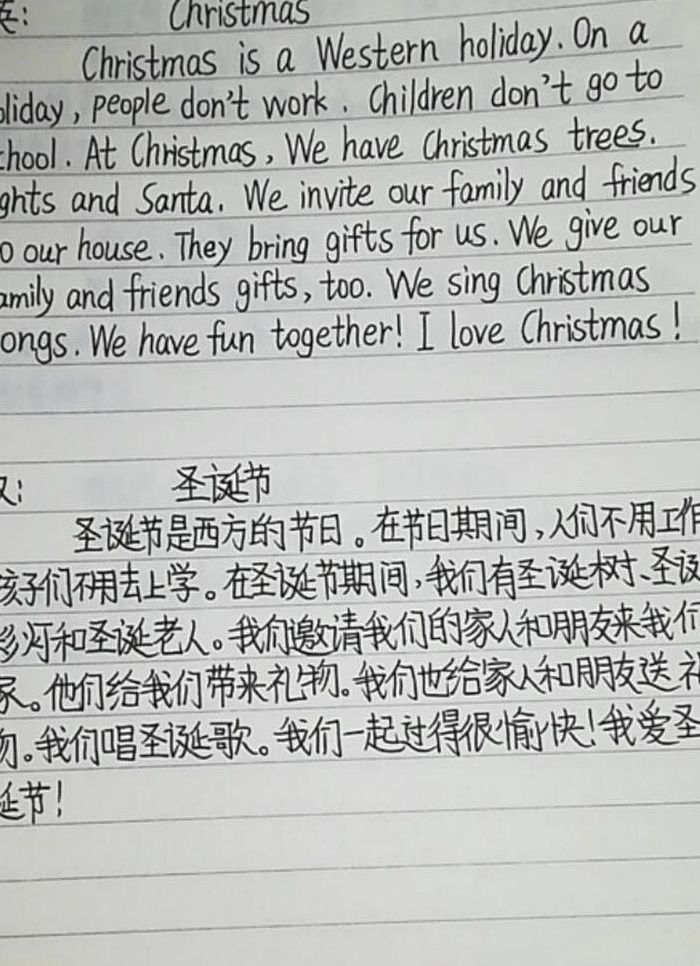 英: Christmas
Christmas is a Western holiday. On a
oliday, people don't work. Children don't go to
chool. At Christmas, We have Christmas trees.
ghts and Santa. We invite our family and friends
o our house. They bring gifts for us. We give our
amily and friends gifts, too. We sing Christmas
ongs. We have fun together! I love Christmas!
汉: 圣诞节
圣诞节是西方的节日。在节日期间,人们不用工作
孩子们不用去上学。在圣诞节期间,我们有圣诞树、圣诞
彩灯和圣诞老人。我们邀请我们的家人和朋友来我们
家。他们给我们带来礼物。我们也给家人和朋友送礼
物。我们唱圣诞歌。我们一起过得很愉快!我爱圣
诞节!